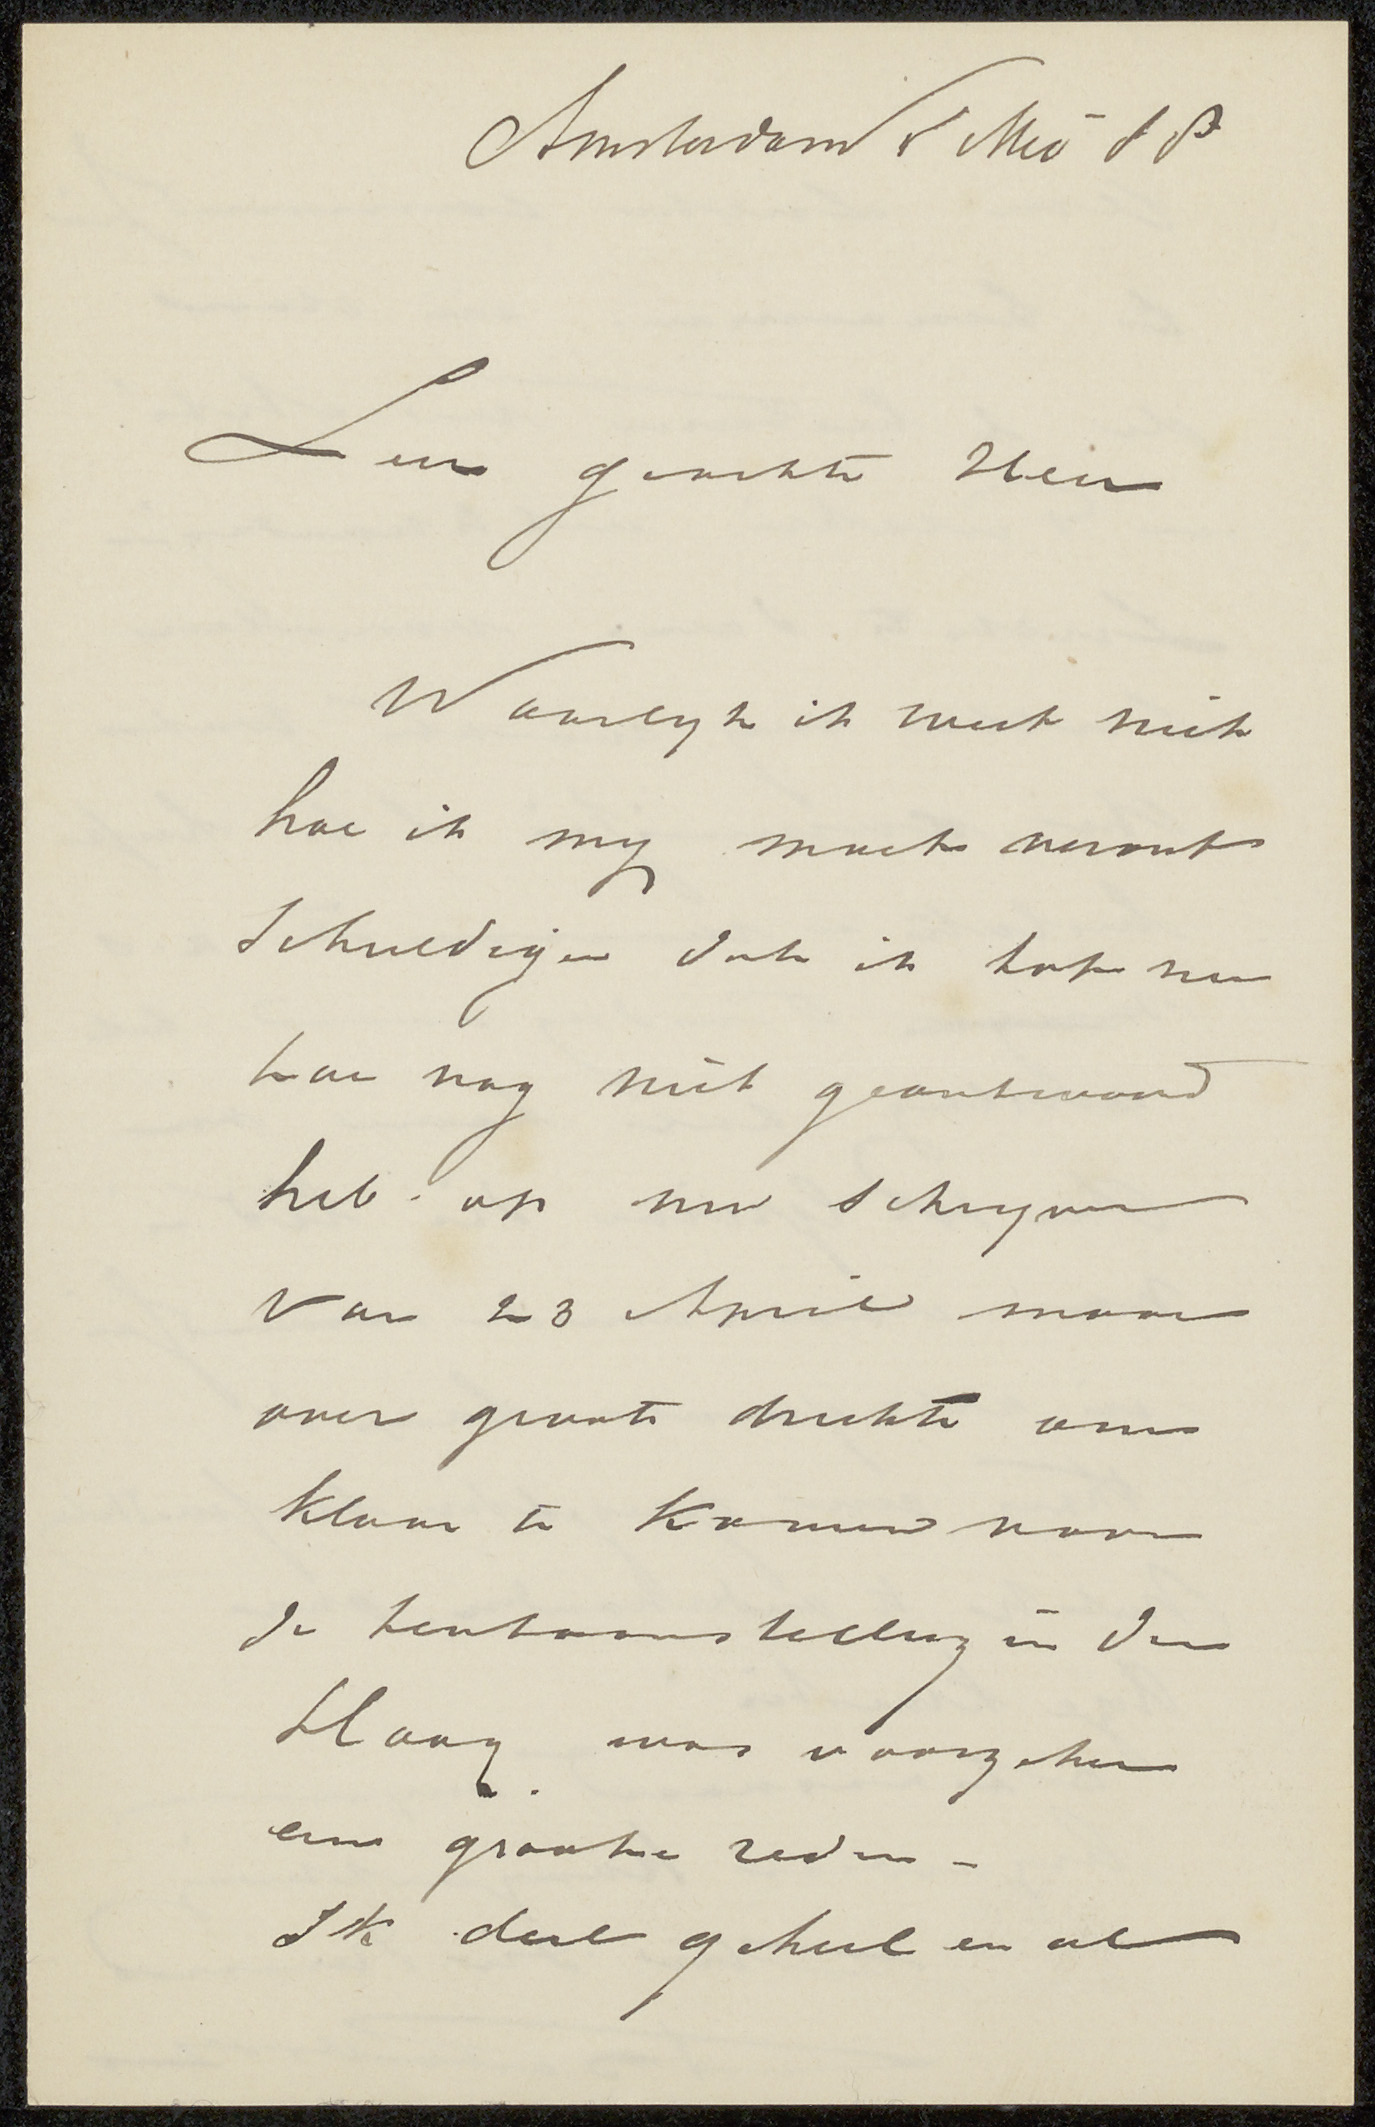 Amsterdam Mei
Zeer geachte Heer
Waarlyk ik weet niet
hoe ik my moet veront
schuldigen dat ik tot nu
toe nog niet geantwoord
heb op uw schryven
van 23 April maar
over groote drukte om
klaar te komen voor
de tentoonstelling in den
Haag was voorzeker
een groote reden -
Ik deel geheel en al